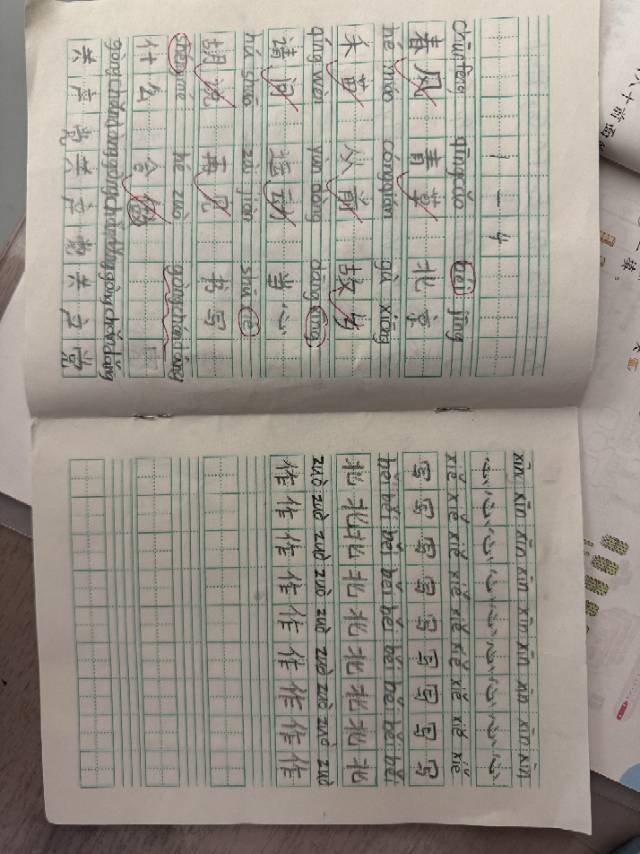 1—4
chūnfēng qīngcǎo běi jīng
春风 青草 北京
hé miáo cóngqián gù xiāng
禾苗 从前 故乡
qǐng wèn yùn dòng dāng xīng
请问 运动 当心
hú shuō zài jiàn shū xiě
胡说 再见 书写
shénme hé zuò gòngchǎndǎng
什么 合作
gòngchǎndǎng gòngchǎndǎng gòngchǎndǎng
共产党 共产党 共产党
xīn xīn xīn xīn xīn xīn xīn xīn xīn
心 心 心 心 心 心 心 心 心
xiě xiě xiě xiě xiě xiě xiě xiě xiě
写 写 写 写 写 写 写 写 写
běi běi běi běi běi běi běi běi běi
北 北 北 北 北 北 北 北 北
zuò zuò zuò zuò zuò zuò zuò zuò zuò
作 作 作 作 作 作 作 作 作